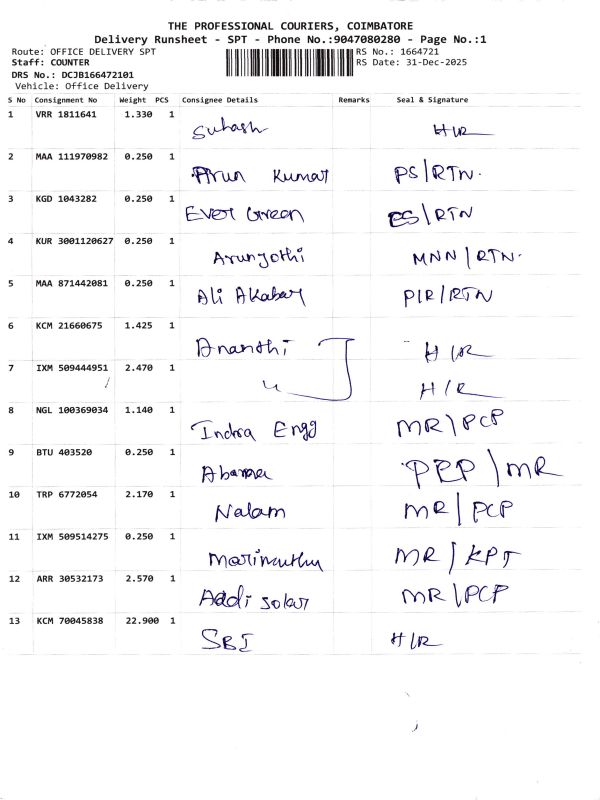 THE PROFESSIONAL COURIERS, COIMBATORE
Delivery Runsheet - SPT - Phone No.:9047080280 - Page No.:1
Route: OFFICE DELIVERY SPT RS No.: 1664721
Staff: COUNTER RS Date: 31-Dec-2025
DRS No.: DCJB166472101
Vehicle: Office Delivery
S No Consignment No Weight PCS Consignee Details Remarks Seal & Signature
1 VRR 1811641 1.330 1 Suhash H/R
2 MAA 111970982 0.250 1 Arun Kumar PS/RTN.
3 KGD 1043282 0.250 1 Ever Green ES/RTN
4 KUR 3001120627 0.250 1 Arunjothi MNN/RTN.
5 MAA 871442081 0.250 1 Ali Akabar PIR/RTN
6 KCM 21660675 1.425 1 Ananthi H/R
7 IXM 509444951 2.470 1 H/R
8 NGL 100369034 1.140 1 Indra Engg MR/PCP
9 BTU 403520 0.250 1 PEP/MR
10 TRP 6772054 2.170 1 Nalam MR/PCP
11 IXM 509514275 0.250 1 Marimuthu MR/KPT
12 ARR 30532173 2.570 1 Aadi Solar MR/PCP
13 KCM 70045838 22.900 1 SBI H/R